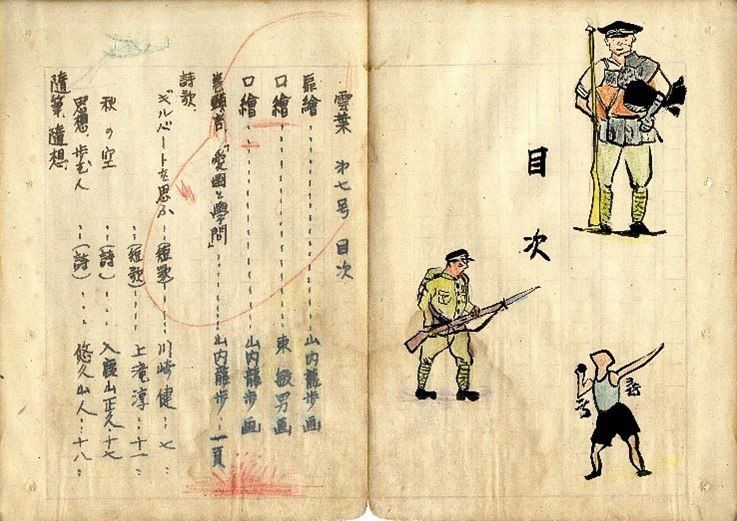 目次
雲葉 第七号 目次
扉繪………山内龍歩画
口繪………東敏男画
口繪………山内龍歩画
巻頭言「愛国と學問」……山内龍歩…一頁
詩歌、
ギルバートを思ふ…(短歌)……川崎健…七…
…(短歌)……上滝淳…十一…
秋の空…(詩)……入霞山正久…十七
思想、歩む人…(詩)……悠久山人…十八…
隨筆、隨想、